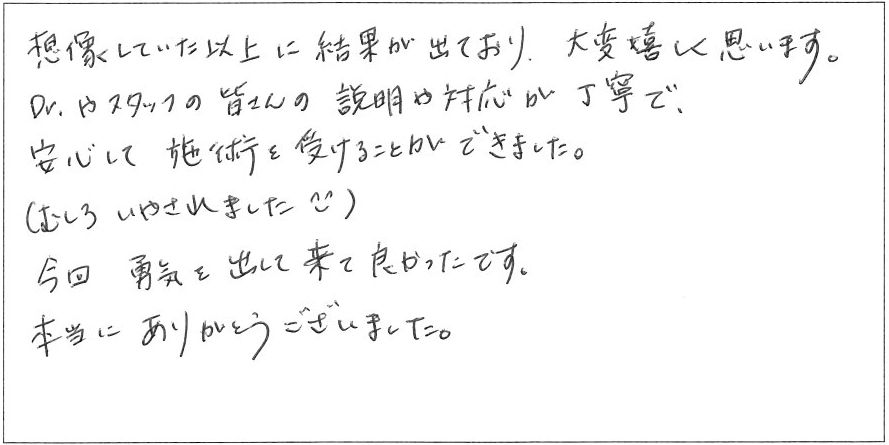 想像していた以上に結果が出ており、大変嬉しく思います。
Dr.やスタッフの皆さんの説明や対応が丁寧で、
安心して施術を受けることができました。
(むしろいやされました)
今回勇気を出して来て良かったです。
本当にありがとうございました。